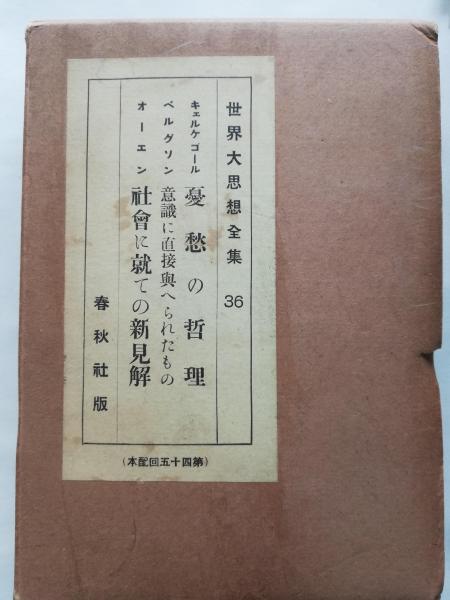 世界大思想全集 36
キェルケゴール 憂愁の哲理
ベルグソン 意識に直接與へられたもの
オーエン 社會に就ての新見解
春秋社版
(第四十五回配本)